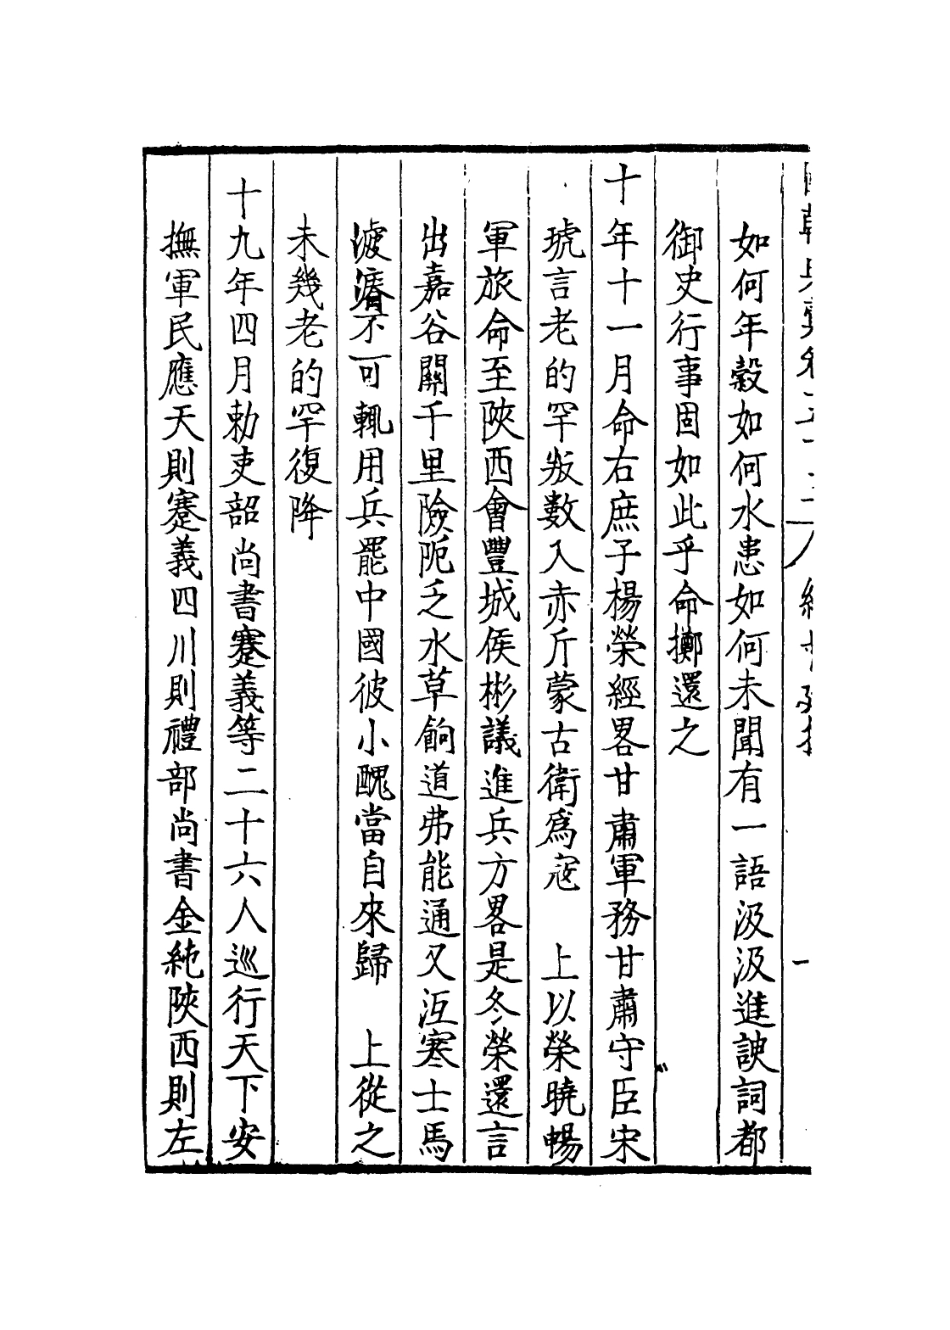 如何年穀如何水患如何未聞有一語汲汲進諛詞都
御史行事固如此乎命擲還之
十年十一月命右庶子楊榮經畧甘肅軍務甘肅守臣宋
琥言老的罕叛數入赤斤蒙古衛爲寇　上以榮曉暢
軍旅命至陝西會豐城侯彬議進兵方畧是冬榮還言
出嘉谷關千里險阨乏水草餉道弗能通又沍寒士馬
不可輒用兵罷中國彼小醜當自來歸　上從之
未幾老的罕復降
十九年四月勅吏韶尚書蹇義等二十六人巡行天下安
撫軍民應天則蹇義四川則禮部尚書金純陝西則左